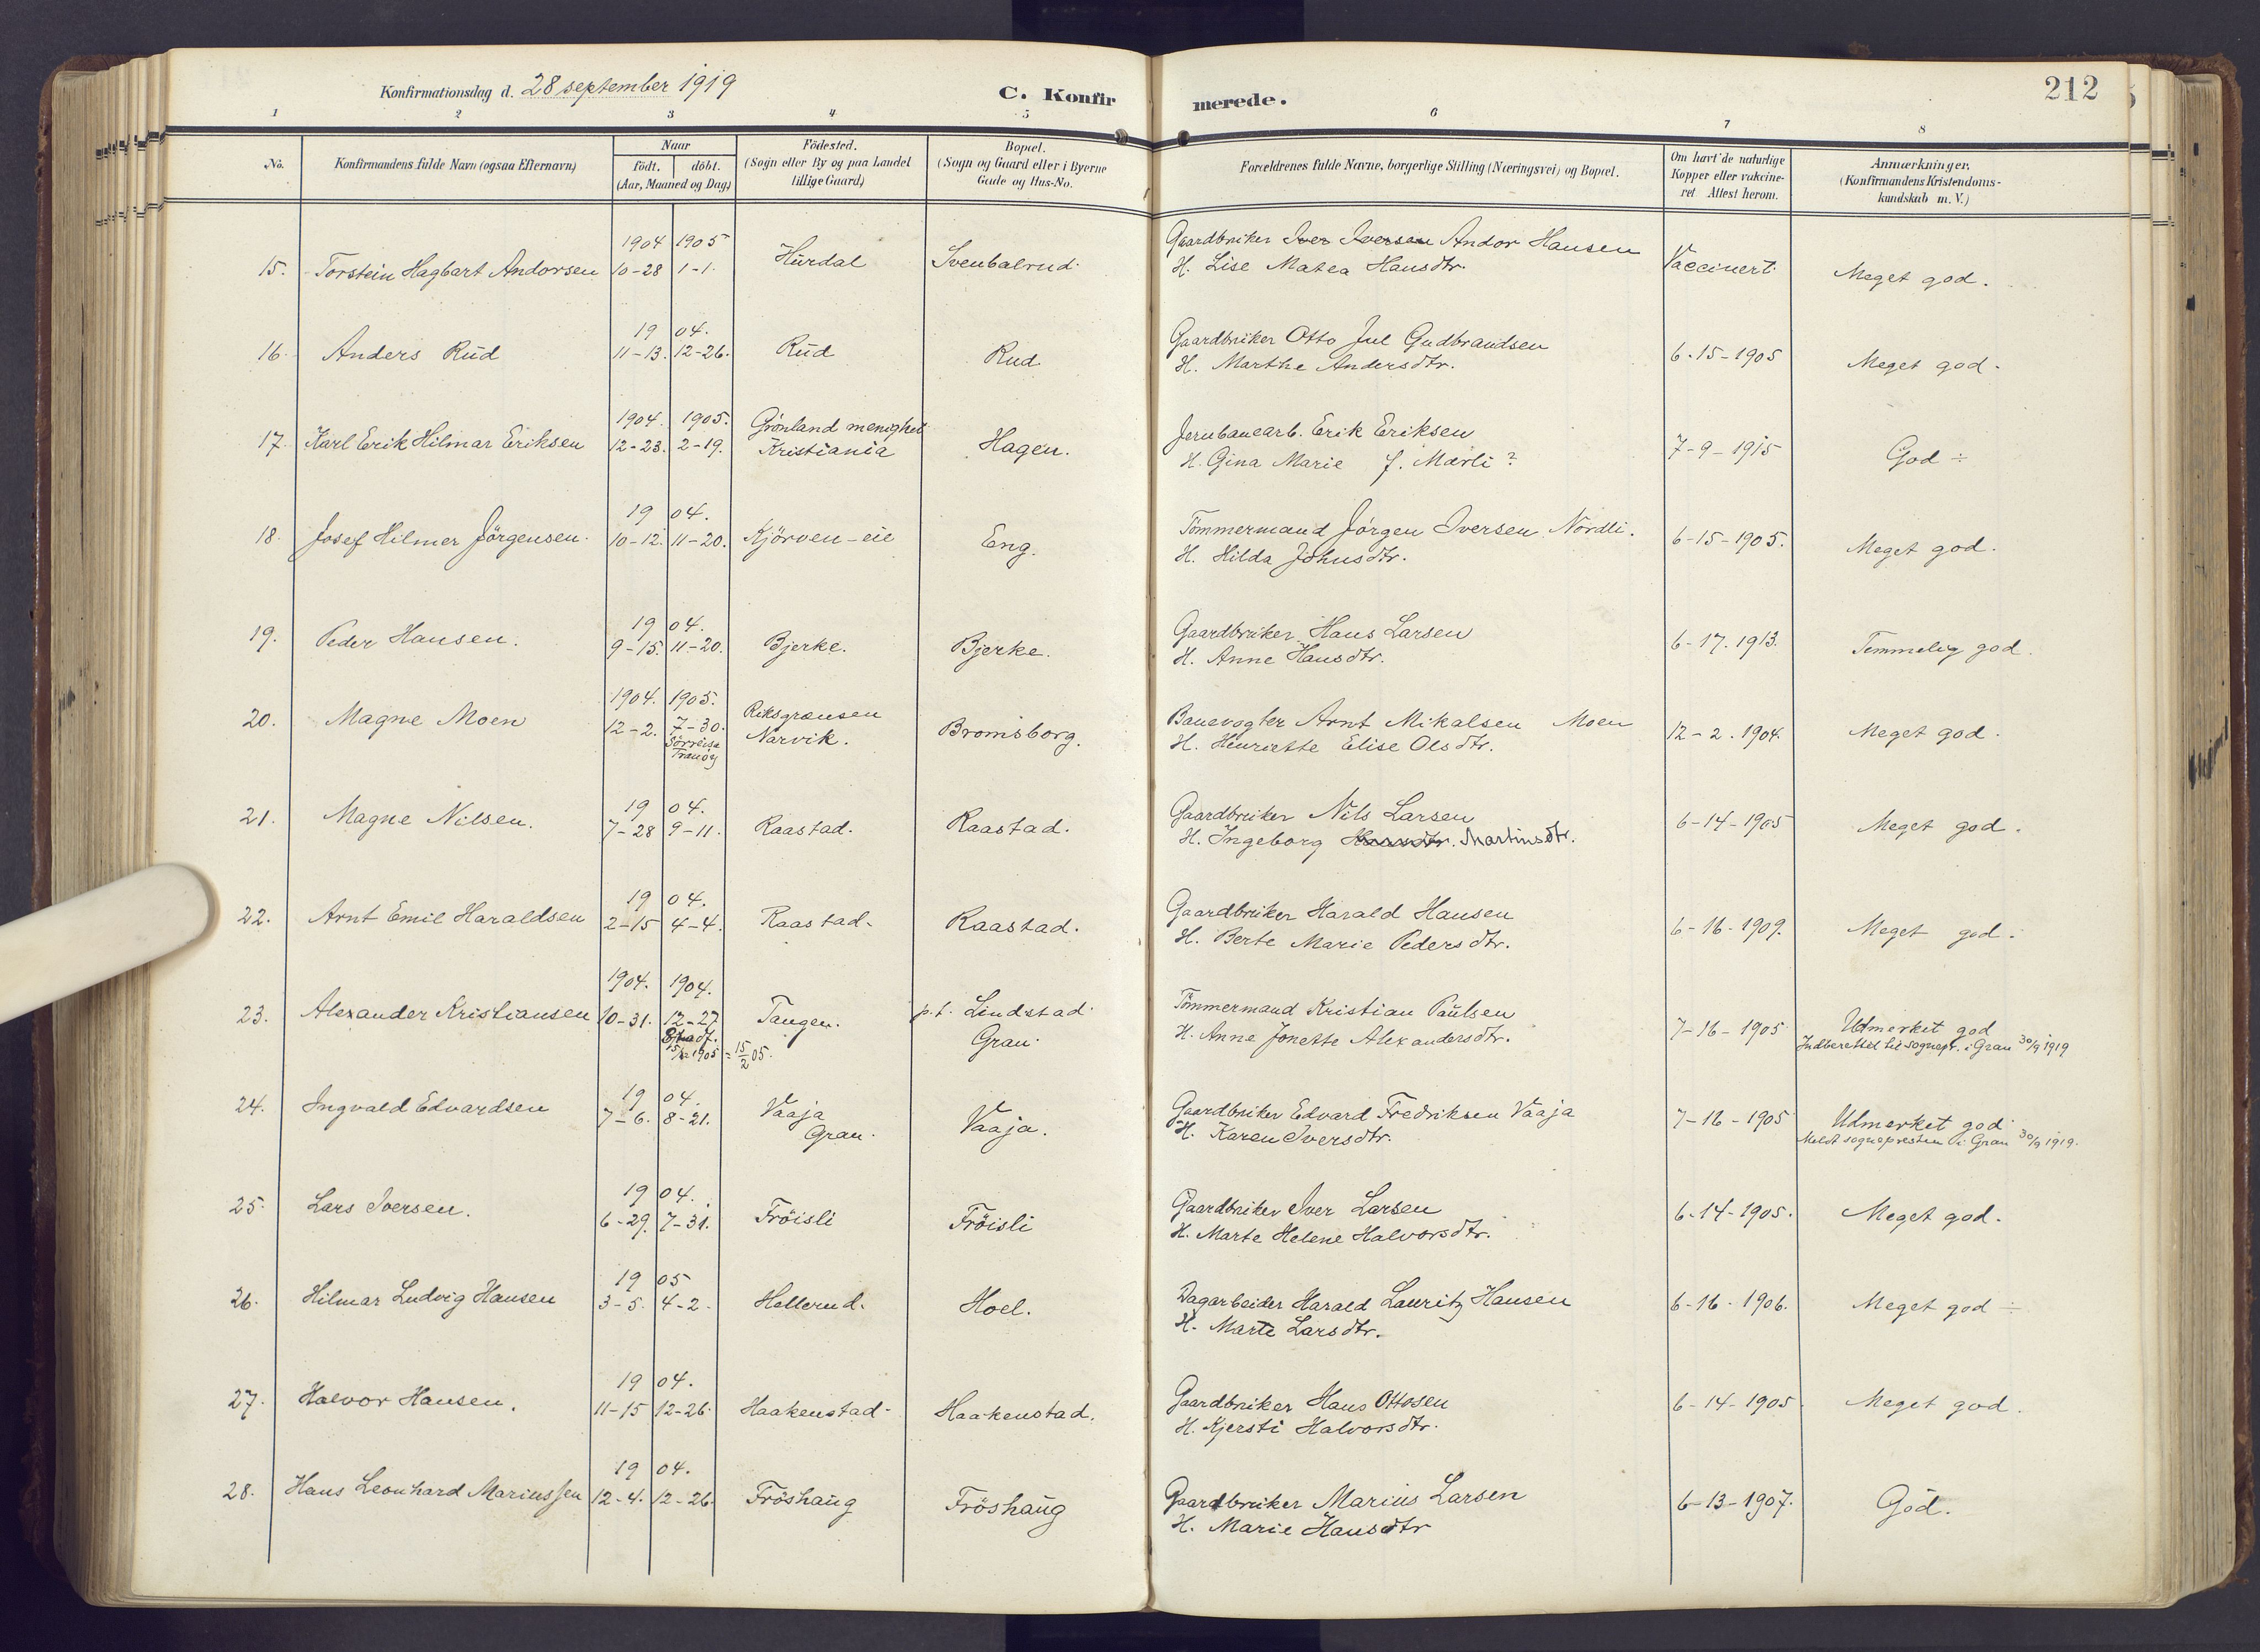 Konfirmationsdag d. 28 september 1919
C. Konfirmerede.
212
1 2 3 4 5 6 7 8
No. Konfirmandens fulde Navn (ogsaa Efternavn) Naar født, døbt. (Aar, Maaned og Dag) Fødested. (Sogn eller By og paa Landet tillige Gaard) Bopæl. (Sogn og Gaard eller i Byerne Gade og Hus-No. Forældrenes fulde Navne, borgerlige Stilling (Næringsvei) og Bopæl. Om havt de naturlige Kopper eller vakcineret Attest herom. Anmærkninger. (Konfirmandens Kristendomskundskab m. V.)
15. Torstein Hagbart Andorsen 1904 10-28 1905 1-1. Hurdal Svenbalrud. Gaardbruker Iver Iversen Andor Hansen
H. Lise Matea Hansdtr. Vaccinert. Meget god.
16. Anders Rud 1904. 11-13. 12-26. Rud Rud Gaardbruker Otto Jul Gudbrandsen
H. Marthe Andersdtr. 6-15-1905 Meget god.
17. Karl Erik Hilmar Eriksen 1904. 12-23. 1905. 2-19. Grønland menighet Kristiania Hagen. Jernbanearb. Erik Eriksen
H. Gina Marie f. Mærli? 7-9-1915 God ÷
18. Josef Hilmer Jörgensen. 1904. 10-12. 11-20. Kjörven-eie Eng. Tömmermand Jörgen Iversen Nordli.
H. Hilda Johnsdtr. 6-15-1905. Meget god.
19. Peder Hansen. 1904. 9-15. 11-20. Bjerke. Bjerke. Gaardbruker Hans Larsen
H. Anne Hansdtr. 6-17. 1913. Temmelig god.
20. Magne Moen 1904. 12-2. 1905. 7-30. Sörreisa Tranöy Riksgrænsen Narvik. Bromsborg. Banevogter Arnt Mikalsen Moen
H. Henriette Elise Olsdtr. 12-2. 1904. Meget god.
21. Magne Nilsen. 1904. 7-28 9-11. Raastad. Raastad. Gaardbruker Nils Larsen
H. Ingeborg Hansdtr. Martinsdtr. 6-14-1905 Meget god.
22. Arnt Emil Haraldsen 1904. 2-15 4-4. Raastad. Raastad. Gaardbruker Harald Hansen
H. Berte Marie Pedersdtr. 6-16-1909. Meget god.
23. Alexander Kristiansen 1904. 10-31. 1904. 12-27 15/2 1905 = 15/2 05. Tangen. p.t. Lindstad Gran. Tömmermand Kristian Paulsen
H. Anne Jonette Alexandersdtr. 7-16-1905 Udmerket god
Indberettet til sognepr. i Gran 30/9 1919
24. Ingvald Edvardsen 1904. 7-6. 8-21. Vaaja Gran. Vaaja. Gaardbruker Edvard Fredriksen Vaaja
H. Karen Iversdtr. 7-16-1905 Udmerket god
Meldt sognepresten i Gran 30/9 1919.
25. Lars Iversen. 1904. 6-29. 7-31. Fröisli Fröisli Gaardbruker Iver Larsen
H. Marte Helene Halvorsdtr. 6-14-1905. Meget god.
26. Hilmar Ludvig Hansen 1905 3-5. 4-2. Hellerud. Hoel. Dagarbeider Harald Lauritz Hansen
H. Marte Larsdtr. 6-16-1906. Meget god ÷
27. Halvor Hansen. 1904. 11-15 12-26. Haakenstad. Haakenstad. Gaardbruker Hans Ottosen
H. Kjersti Halvorsdtr. 6-14-1905 Meget god.
28. Hans Leonhard Mariussen 1904. 12-4. 12-26. Fröshaug Fröshaug Gaardbruker Marius Larsen
H. Marie Hansdtr 6-13-1907. God.